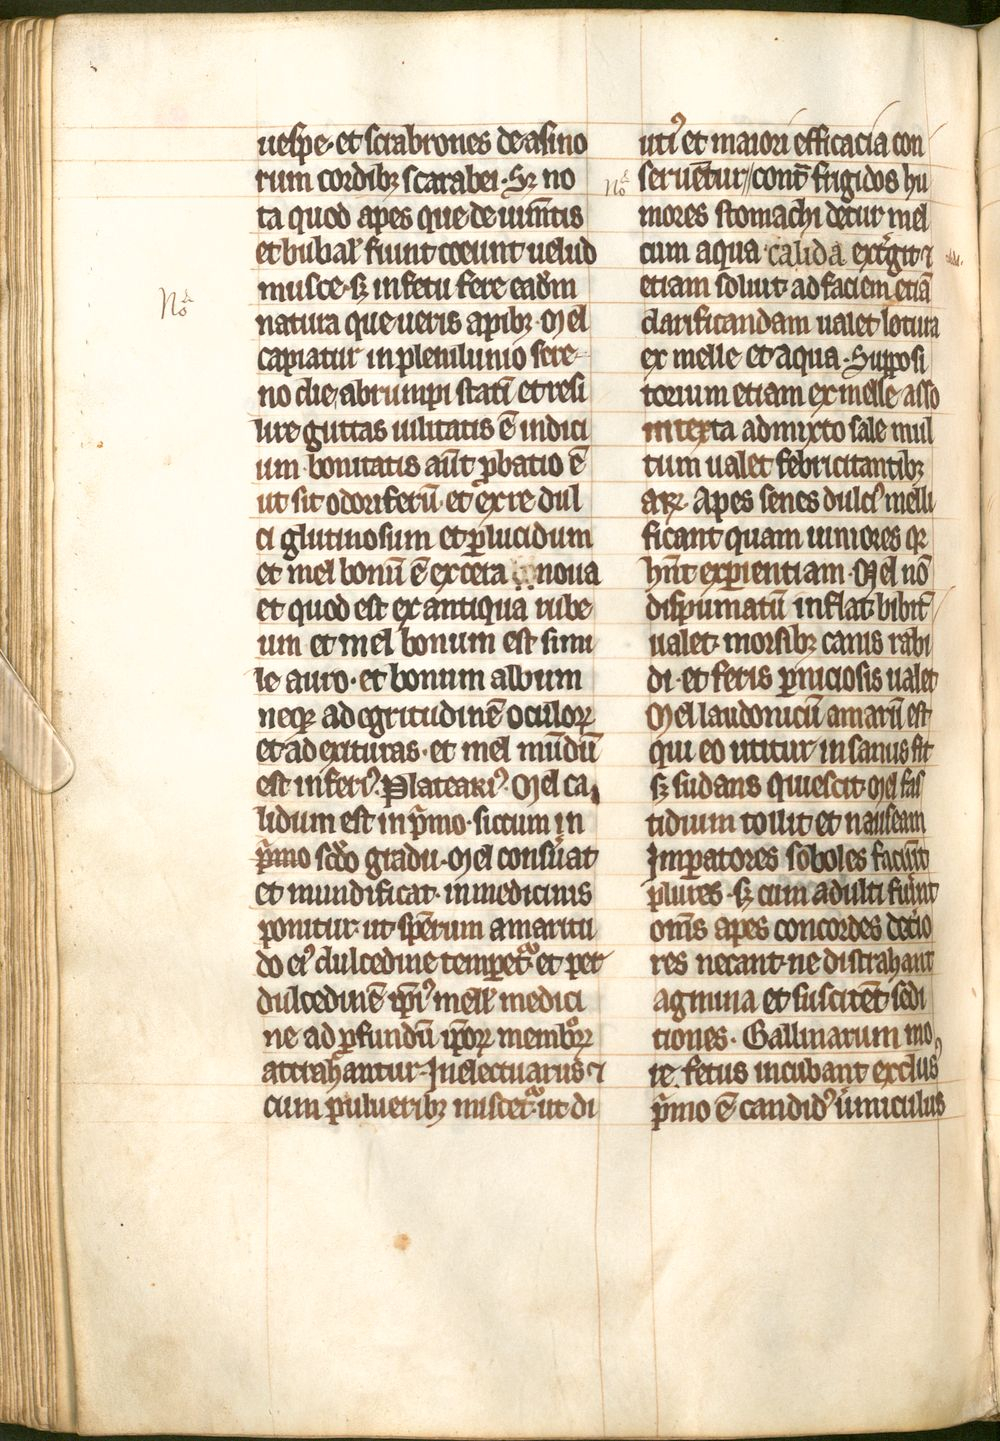 uespe· et scrabrones de asino
rum cordibꝫ scarabei· Sꝫ no
ta quod apes que de iuūtis
et bubal᷒ fiunt coeunt uelud
musce· sꝫ in fetu fere eadē
Nō
natura que ueris apibꝫ· Mel
capiatur in plenilunio sere-
no die, abrumpi statī et resi
lire guttas uilitatis ē indici
um· bonitatis aūt ꝓbatio ē
ut sit odoriferū· et ex re dul
ci glutinosum et ꝑlucidum
et mel bonū ē ex cera noua
et quod est ex antiqua rube
um et mel bonum est simi
le auro· et bonum album
neqꝫ ad egritudinē oculoꝝ
et ad exituras· et mel mūdū
est inferiꝰ. Platearıꝰ· Mel ca
lidum est in p̄mo· siccum in
p̄mo scd̄o gradu· Mel cōseruat
et mundificat· in medicinis
ponitur· ut speꝝum amaritu
do eiꝰ dulcedine tempetᷓ· et per
dulcedinē ip̄iꝰ mell᷒ medici
ne ad ꝓfundū ip̄oꝝ membꝛoꝝ
attrahantur· In electuariis ⁊
cum puluerıbꝫ miscetᷓ· ut di
utiꝰ et maiori efficacia con
Nō
seruētur// cont̄ frigidos hu
mores stomachi detur mel
cum aqua calida extᷓgit ⁊
etiam soluit· ad faciem etiā
clarificandam ualet lotura
ex melle et aqua· Supposi
torium etiam ex melle asso
intexta admixto sale mul
tum ualet febricitantibꝫ
Apes senes dulciꝰ melli
ficant quam iuniores qꝛ
hn̄t expientiam· Mel nō
dispumatū inflat bibit̄
ualet morsibꝫ canis rabi
di· et feris ꝑniciosis ualet
Mel laudonicū amarū est
qui eo utitur insanus fit
sꝫ sudans quiescit· Mel fas
tidium tollit et nauseam
Imꝑatores soboles faciūt
plures· sꝫ cum adulti fuerint
om̄s apes concordes det̓io
res necant· ne distrahant
agmina et suscitēt sedi
tiones· Gallinarum mo
re fetus incubant exclus
p̄mo ē candidꝰ u̓miculus